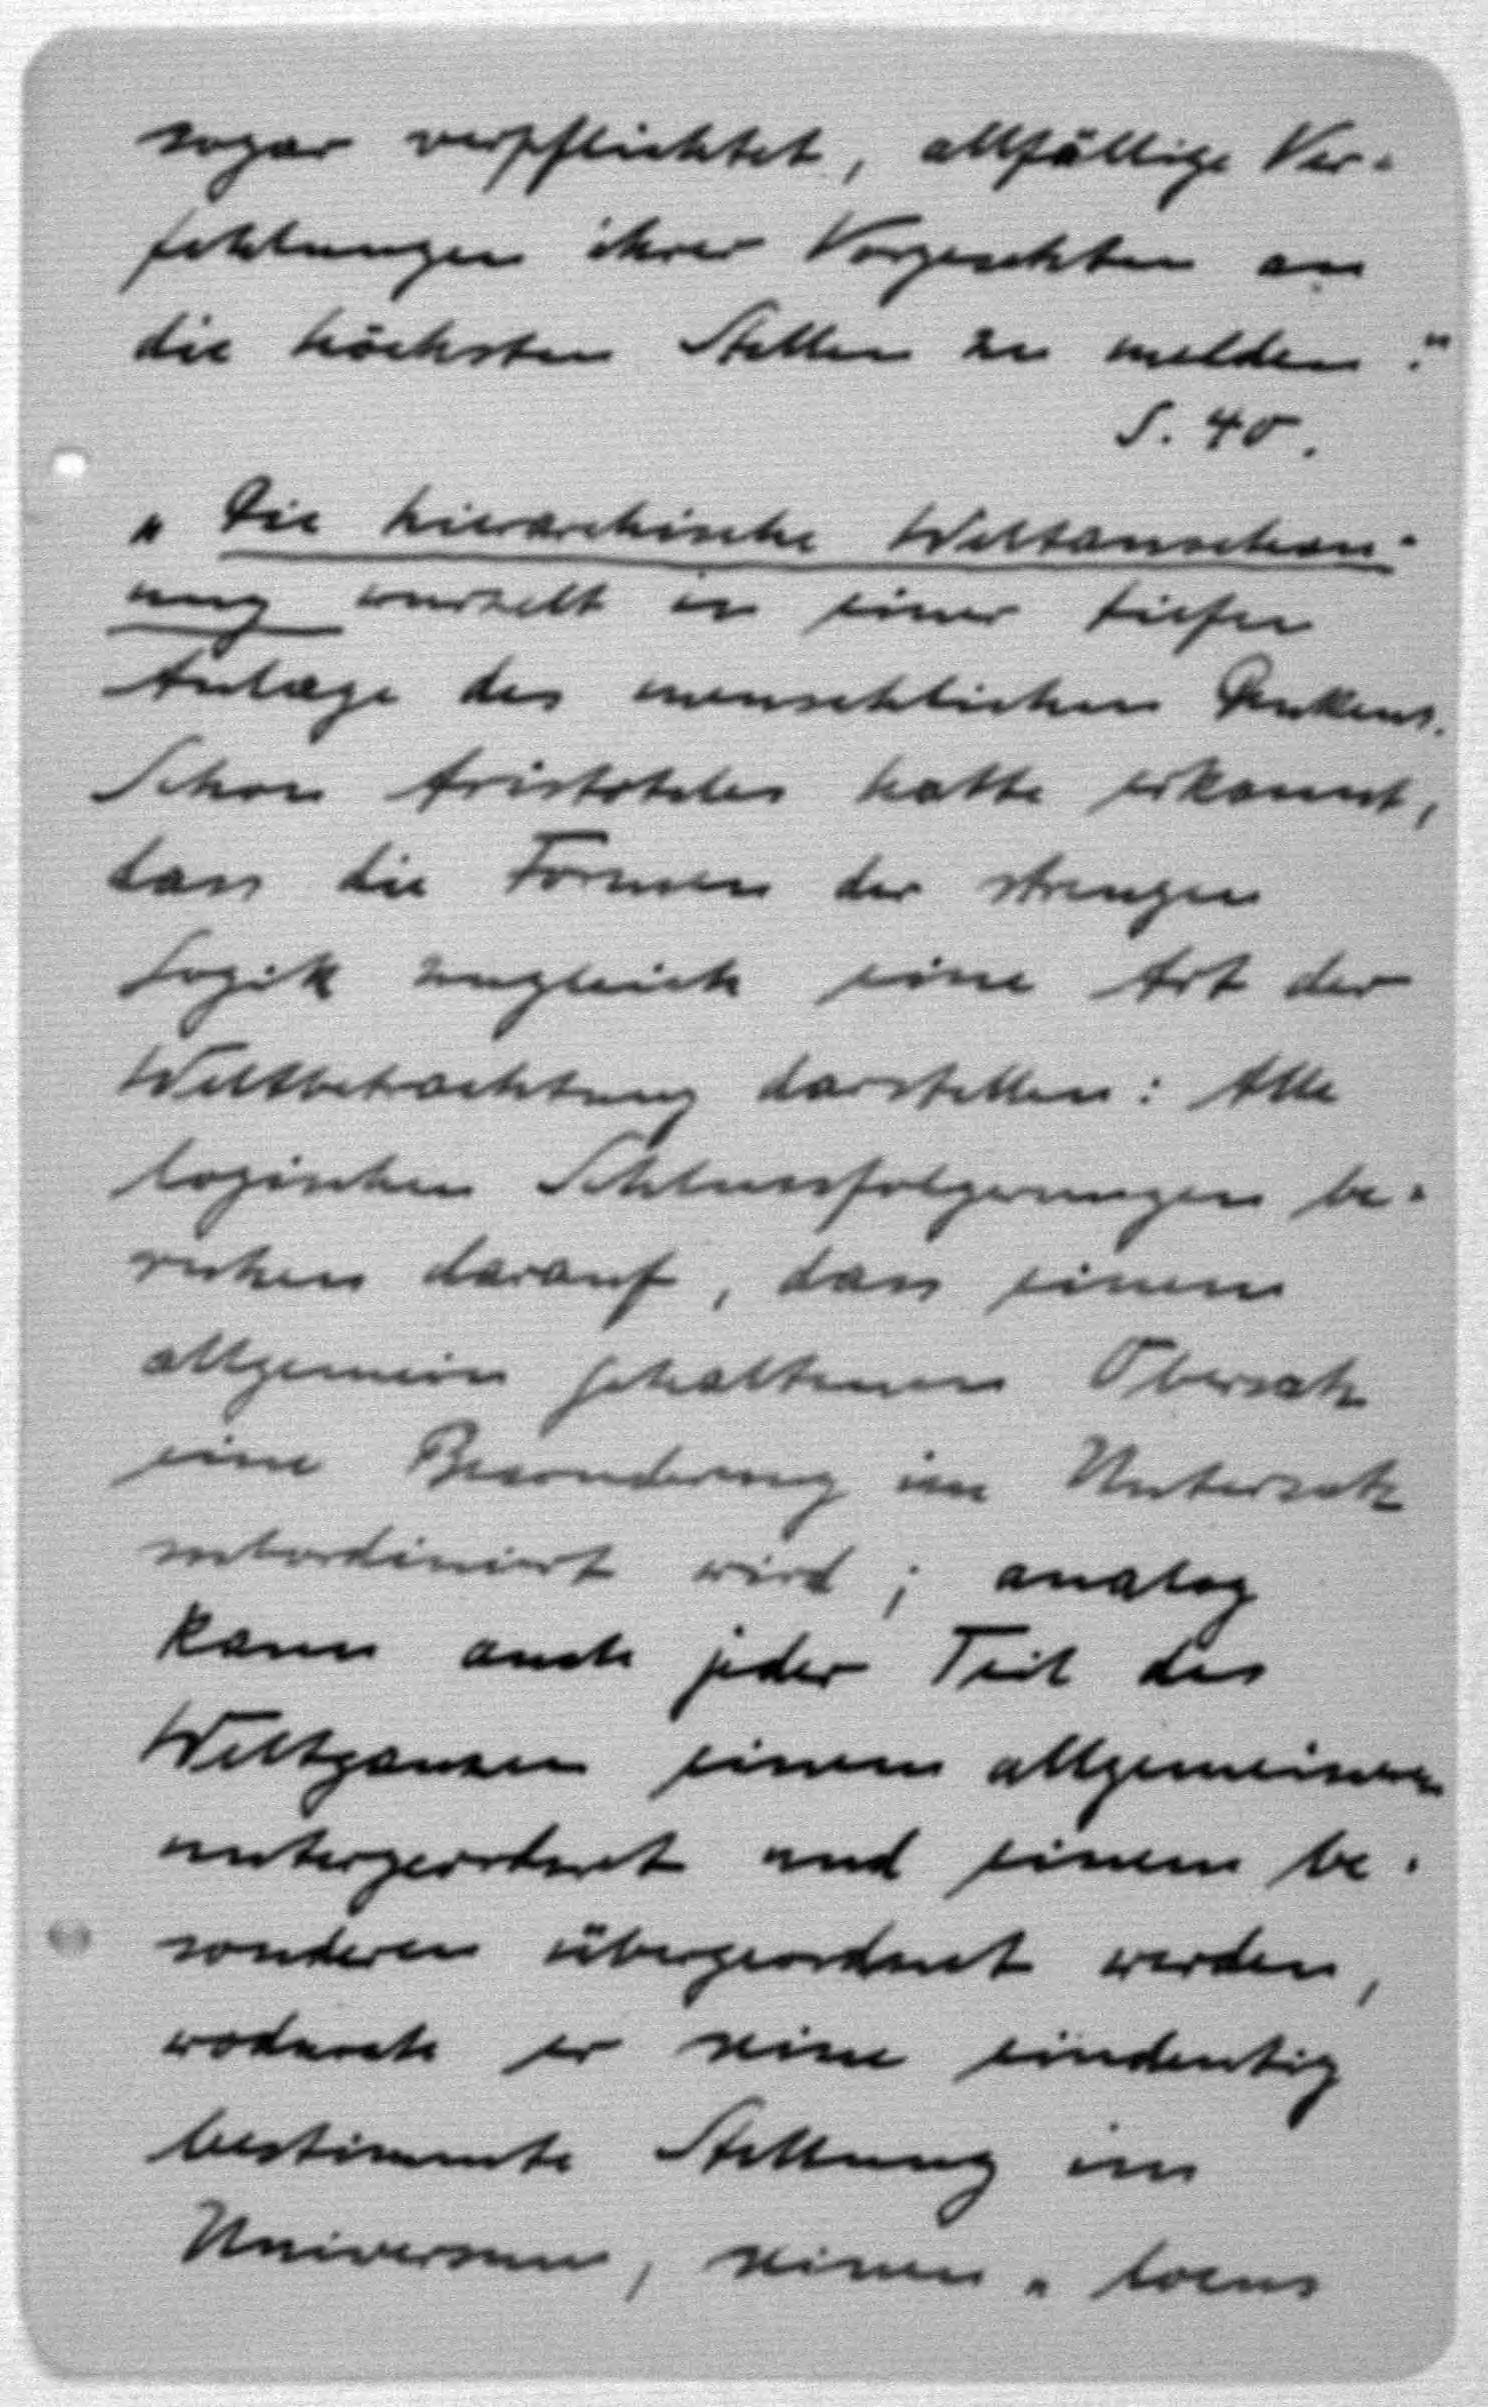 sogar verpflichtet, allfällige Ver-
fehlungen ihrer Vorgesetzten an
die höchsten Stellen zu melden."
S. 40.
„Die hierarchische Weltanschau-
ung wurzelt in einer tiefen
Anlage des menschlichen Denkens.
Schon Aristoteles hatte erkannt,
dass die Formen der strengen
Logik zugleich eine Art der
Weltbetrachtung darstellen: Alle
logischen Schlussfolgerungen be-
ruhen darauf, dass einem
allgemein gehaltenen Obersatz
eine Besonderung im Untersatz
subordiniert wird; analog
kann auch jeder Teil des
Weltganzen einem allgemeineren
untergeordnet und einem be-
sonderen übergeordnet werden,
wodurch er seine eindeutig
bestimmte Stellung im
Universum, seinen „locus